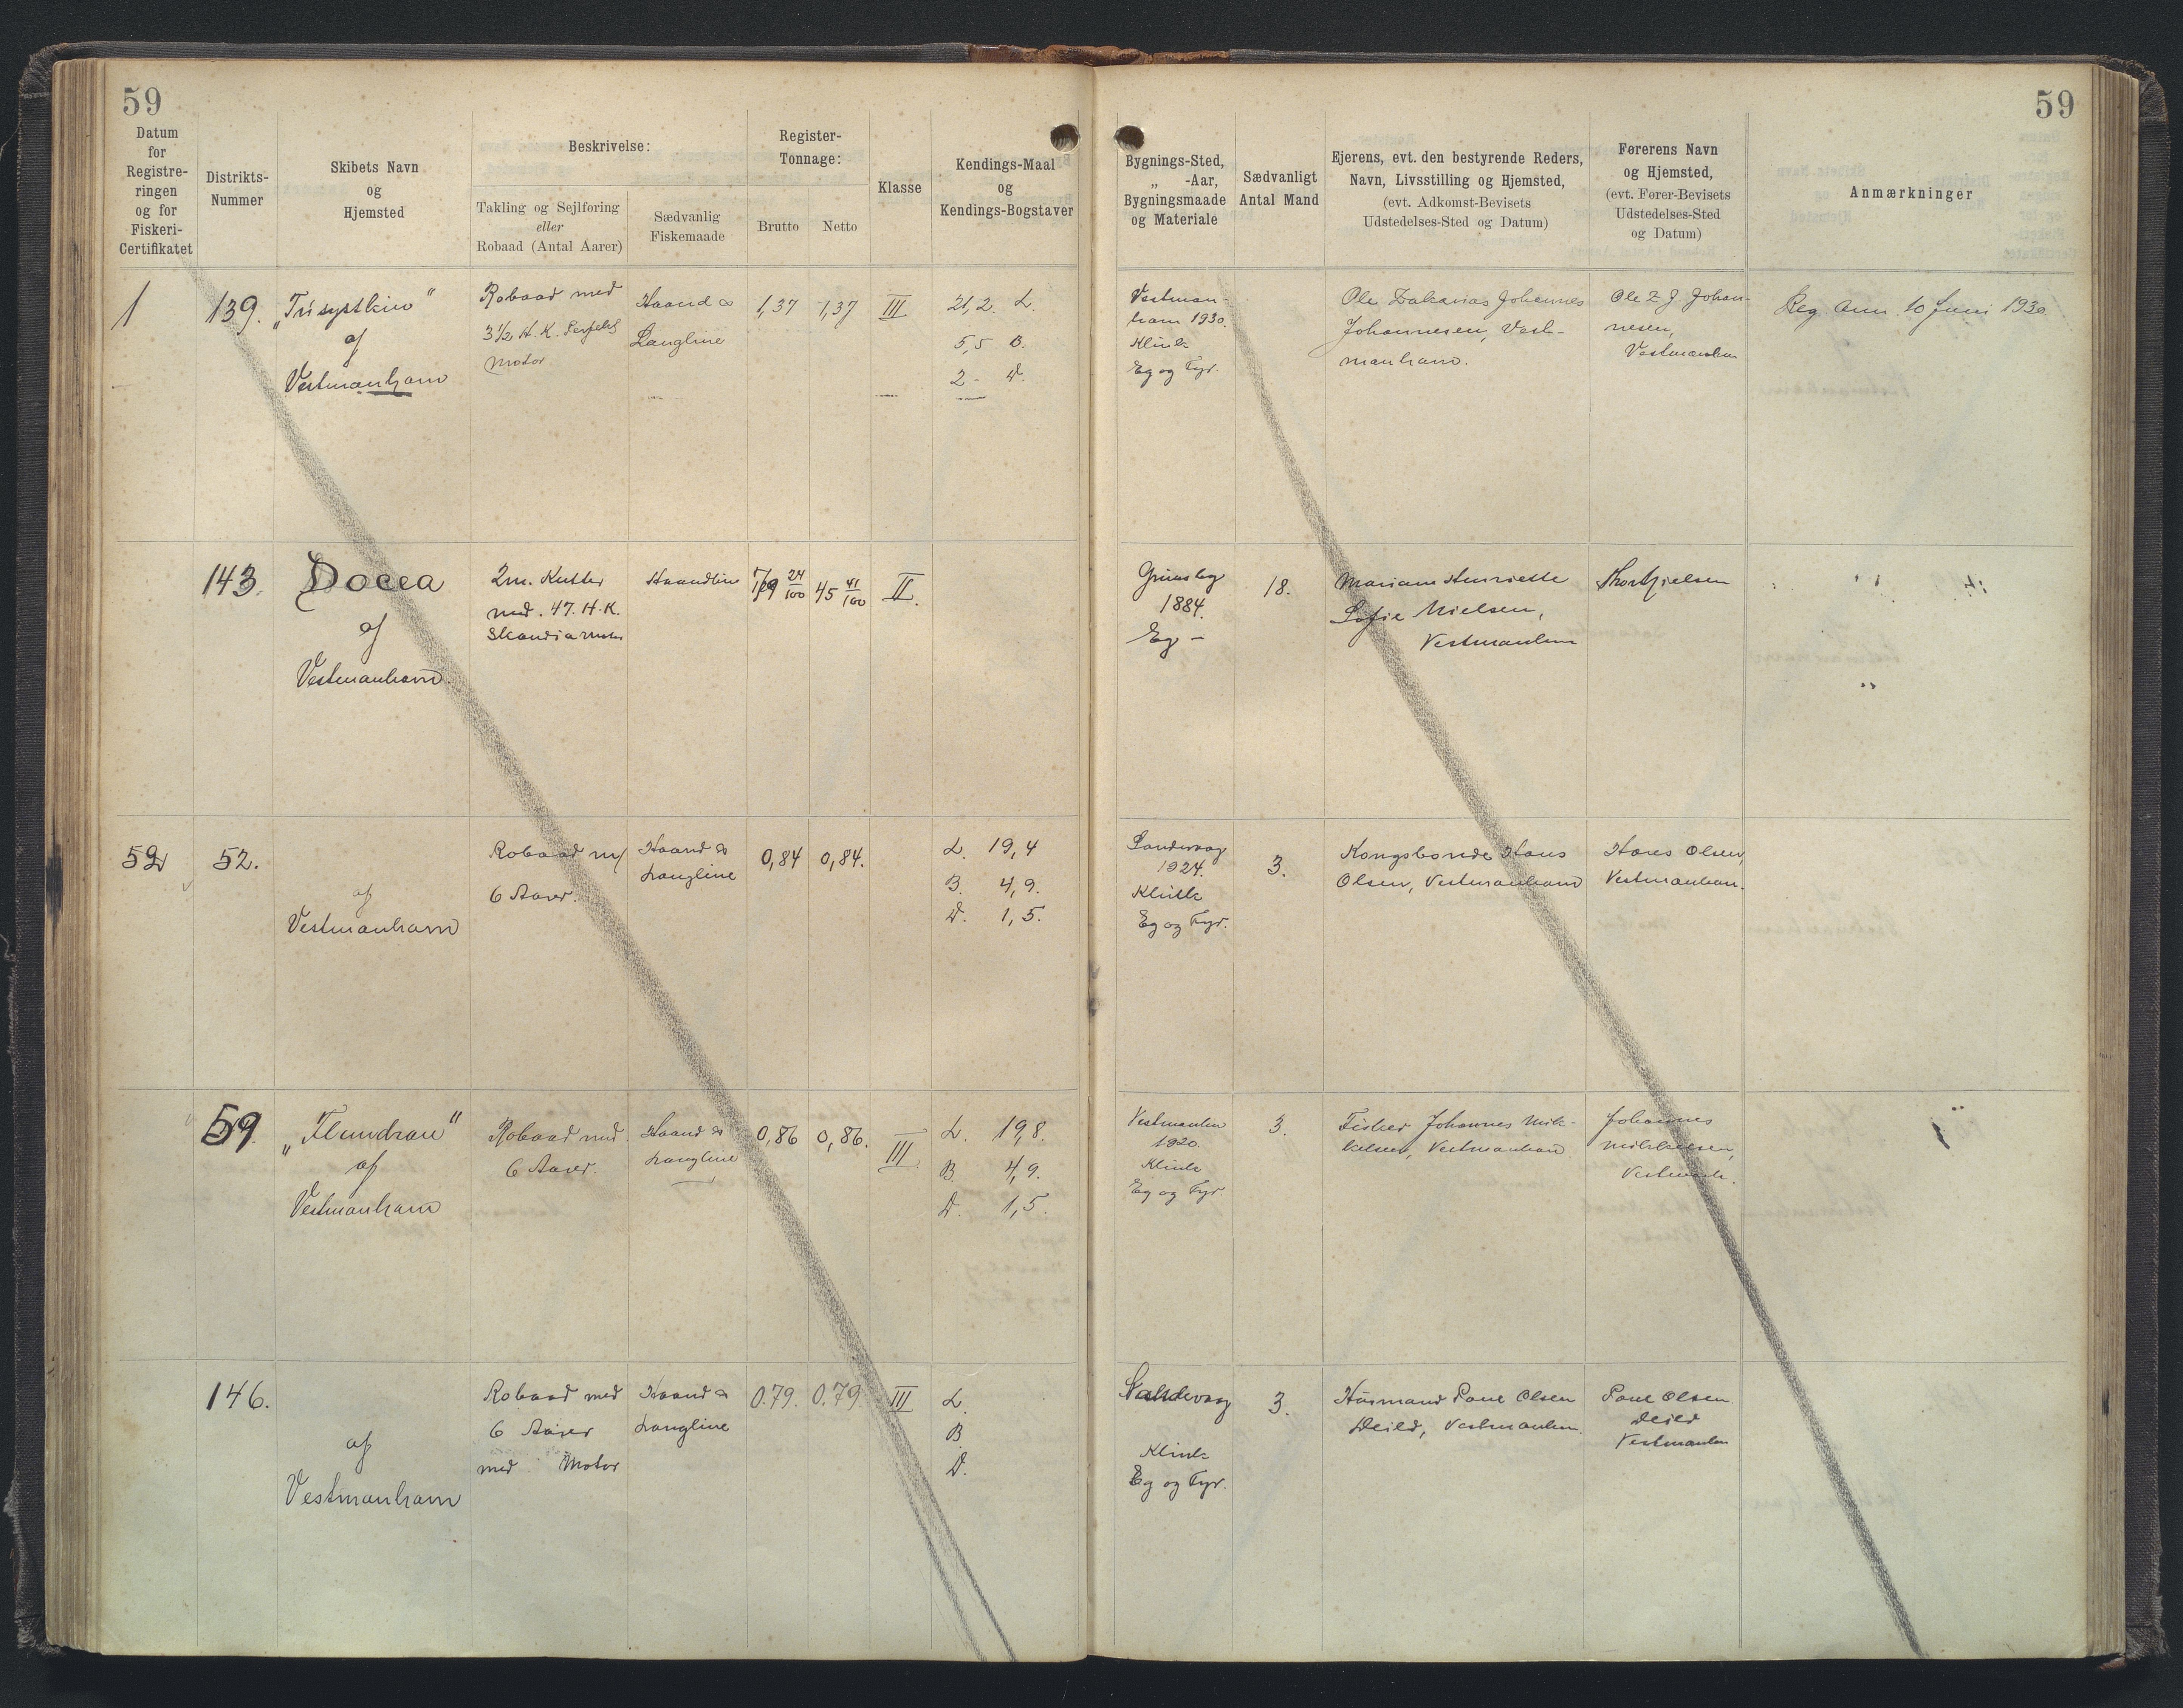 59
59
Datum
for
Registre-
ringen
og for
Fiskeri-
Certifikatet
Distrikts-
Nummer
Skibets Navn
og
Hjemsted
Beskrivelse:
Takling og Sejlføring
eller
Robaad (Antal Aarer)
Sædvanlig
Fiskemaade
Register-
Tonnage:
Brutto
Netto
Klasse
Kendings-Maal
og
Kendings-Bogstaver
Bygnings-Sted,
„ -Aar,
Bygningsmaade
og Materiale
Sædvanligt
Antal Mand
Ejerens, evt. den bestyrende Reders,
Navn, Livsstilling og Hjemsted,
(evt. Adkomst-Bevisets
Udstedelses-Sted og Datum)
Førerens Navn
og Hjemsted,
(evt. Fører-Bevisets
Udstedelses-Sted
og Datum)
Anmærkninger
1
139.
„Trisystkin"
af
Vestmanhavn
Robaad med
3½ H.K.
Motor
Haand &
Langline
1,37
1,37
III
21,2. L
5,5 B.
2 - D.
Vestman-
havn 1930.
Klink
Eg og Fyr.
Ole Zakarias Johannes
Johannesen, Vest-
manhavn.
Ole Z J. Johan-
nesen,
Vestmanhavn
Reg. Anm. 10 Juni 1930
143.
Docea
af
Vestmanhavn.
2m. Kutter
med. 47. H.K.
Skandia Motor
Haandline
79 24/100
45 41/100
II.
Grimsby
1884.
Eg -
18.
Mariam Henriette
Sofie Nielsen,
Vestmanhavn
52
52.
af
Vestmanhavn
Robaad m/
6 Aarer.
Haand &
Langline
0,84
0,84.
L. 19,4
B. 4,9.
D. 1,5.
Sandevaag
1924.
Klink
Eg og Fyr.
3.
Kongsbonde Hans
Olsen, Vestmanhavn
Hans Olsen,
Vestmanhavn.
59.
„Flundran"
af
Vestmanhavn
Robaad med
6 Aarer.
Haand &
Langline
0,86
0,86.
III
L. 19,8.
B. 4,9.
D. 1,5.
Vestmanhn
1920.
Klink
Eg og Fyr.
3.
Fisker Johannes Mik-
kelsen, Vestmanhavn.
Johannes
Mikkelsen,
Vestmanh.
146.
af
Vestmanhavn
Robaad med
6 Aarer
med Motor
Haand &
Langline
0.79.
0.79
III
L.
B.
D.
Sandevaag
Klink
Eg og Fyr.
3.
Husmand Poul Olsen
Deild, Vestmanhn.
Poul Olsen
Deild
Vestmanhn